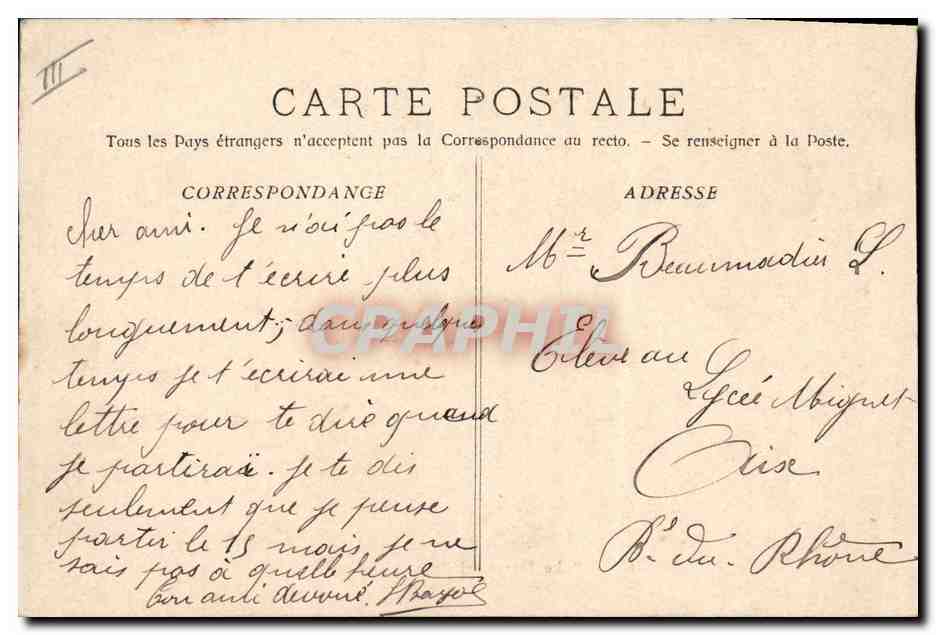 III
CARTE POSTALE
Tous les Pays étrangers n'acceptent pas la Correspondance au recto. - Se renseigner à la Poste.
CORRESPONDANCE
cher ami. Je n'ai pas le
temps de t'écrire plus
longuement; dans quelque
temps je t'écrirai une
lettre pour te dire quand
je partirai. Je te dis
seulement que je pense
partir le 15 mais je ne
sais pas à quelle heure
Ton ami dévoué.
ADRESSE
Mr Beaumadier L.
Elève au
Lycée Mignet
Aix
Bs. du. Rhône
CPAPHIL